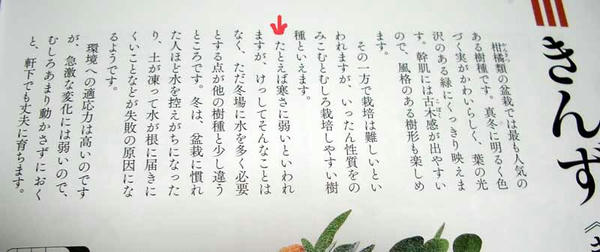 きんず
柑橘類の盆栽では最も人気の
ある樹種です。真冬に明るく色
づく実がかわいらしく、葉の光
沢のある緑にくっきり映えま
す。幹肌には古木感が出やすい
ので、風格のある樹形も楽しめ
ます。
その一方で栽培は難しいとい
われますが、いったん性質をの
みこむとむしろ栽培しやすい樹
種といえます。
たとえば寒さに弱いといわれ
ますが、けっしてそんなことは
なく、ただ冬場に水を多く必要
とする点が他の樹種と少し違う
ところです。冬は、盆栽に慣れ
た人ほど水を控えがちになった
り、土が凍って水が根に届きに
くいことなどが失敗の原因にな
るようです。
環境への適応力は高いのです
が、急激な変化には弱いので、
むしろあまり動かさずにおく
と、軒下でも丈夫に育ちます。